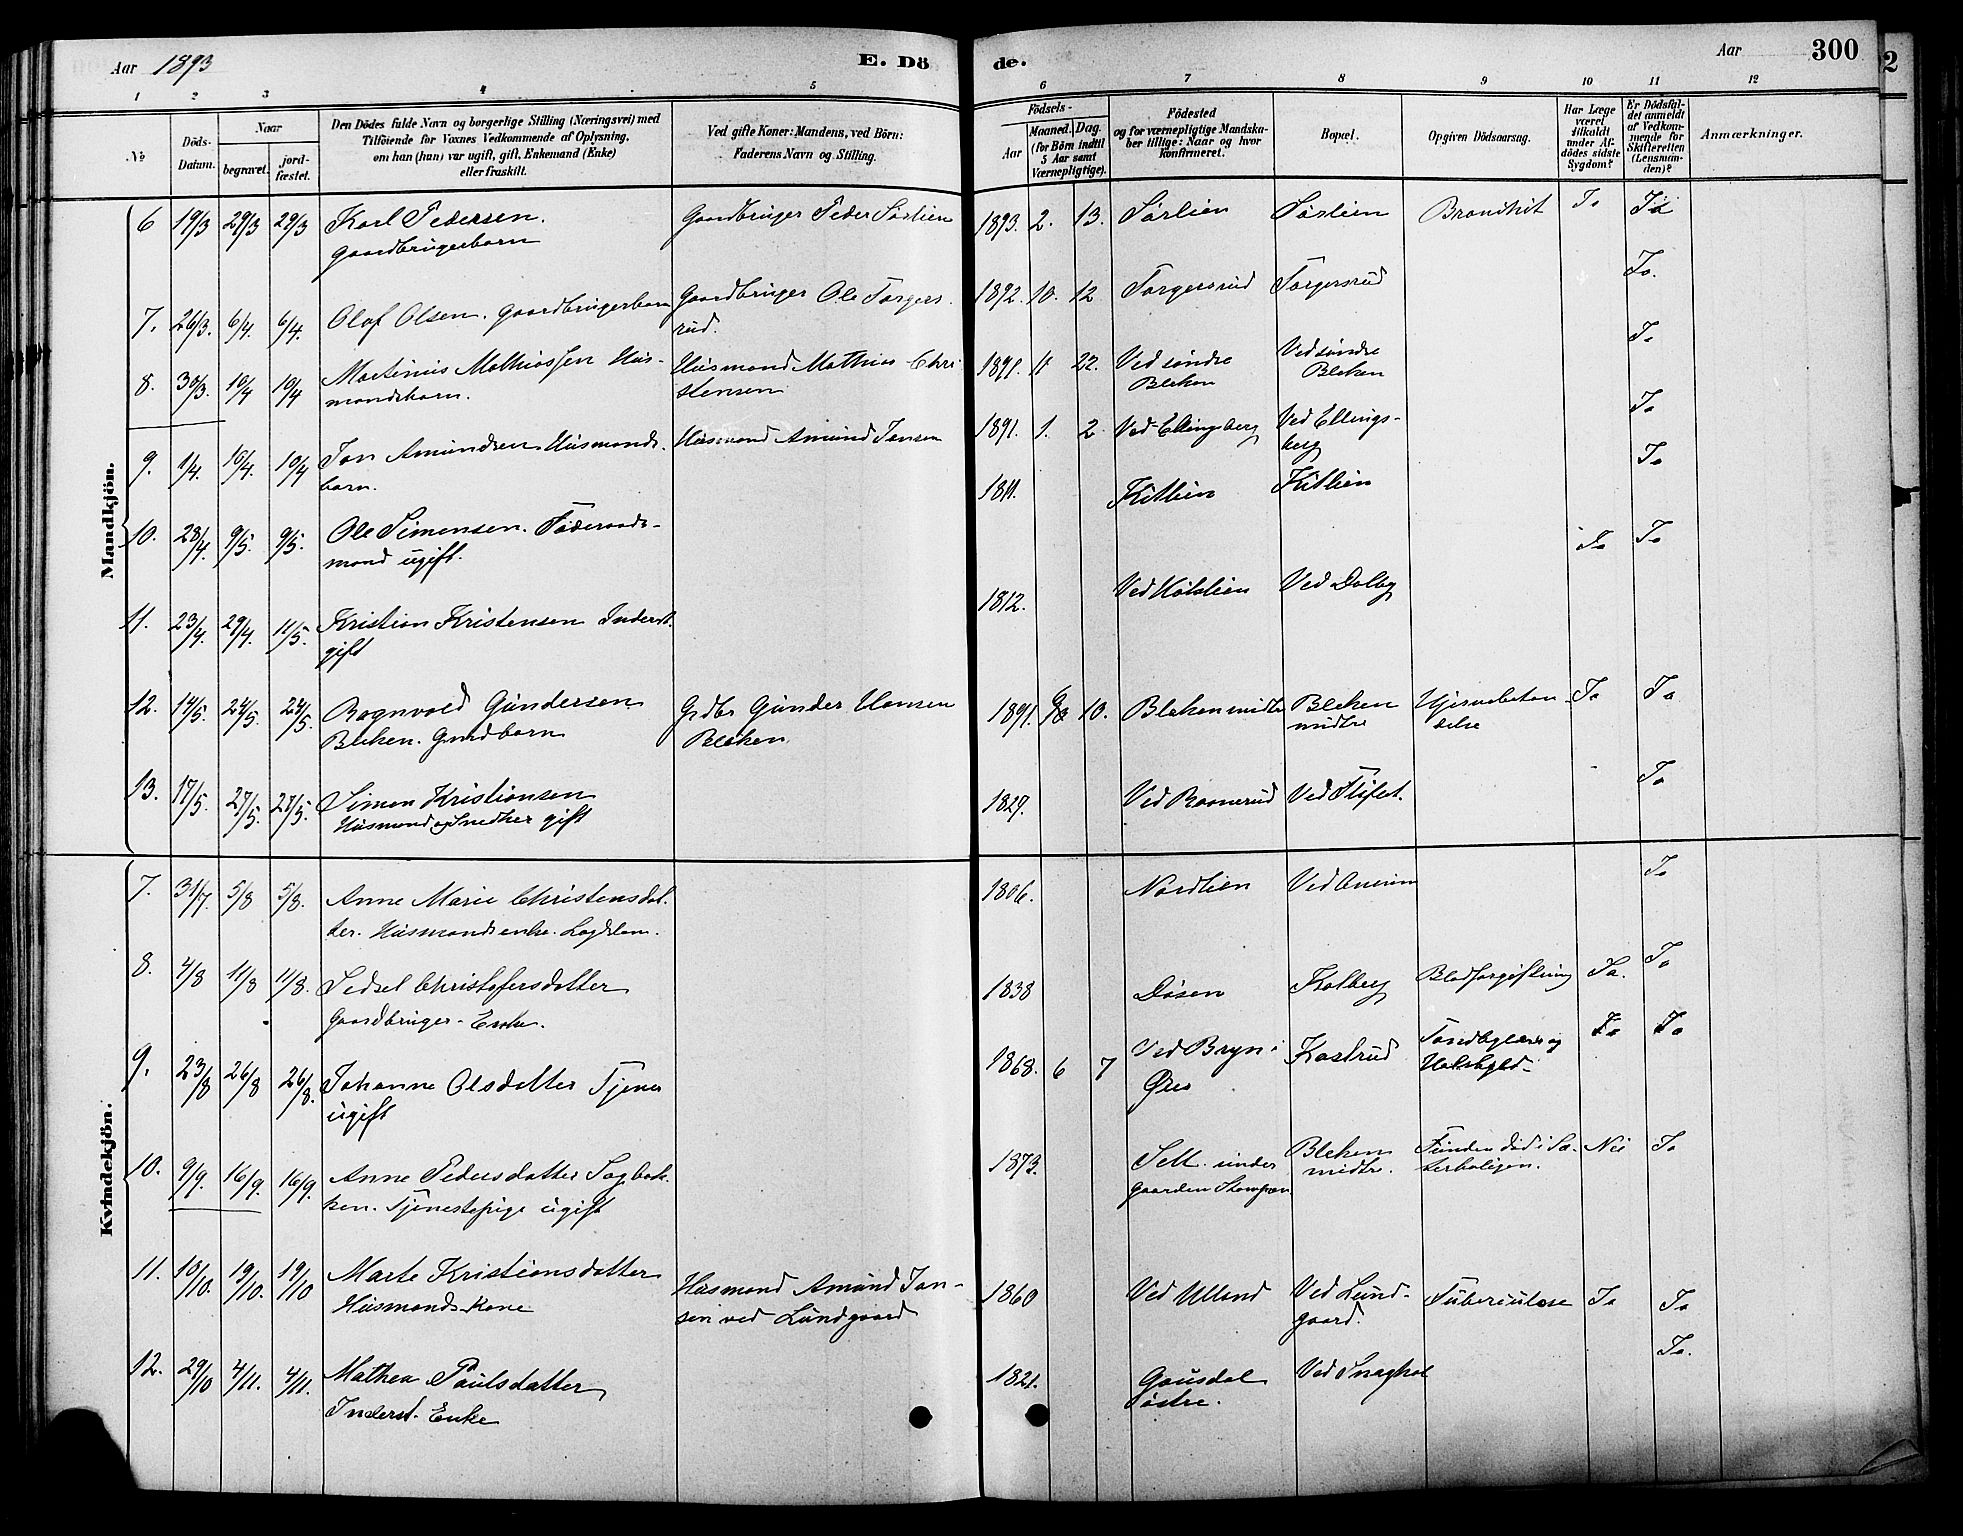 Aar 1893
E. Dö
de.
Aar
300
2
1 2 3 4 5 6 7 8 9 10 11 12
No
Döds-
Datum.
Naar
begravet.
jord-
fæstet.
Den Dödes fulde Navn og borgerlige Stilling (Næringsvei) med
Tilföiende for Voxnes Vedkommende af Oplysning,
om han (hun) var ugift, gift, Enkemand (Enke)
eller fraskilt.
Ved gifte Koner: Mandens, ved Börn:
Faderens Navn og Stilling.
Födsels-
Aar
Maaned.
Dag.
(for Börn indtil
5 Aar samt
Værnepligtige).
Födested
og for værnepligtige Mandska-
ber tillige: Naar og hvor
konfirmeret.
Bopæl.
Opgiven Dödsaarsag.
Har Læge
været
tilkaldt
under Af-
dödes sidste
Sygdom?
Er Dödsfal-
det anmeldt
af Vedkom-
mende for
Skifteretten
(Lensman-
den)?
Anmærkninger.
Mandkjön.
6 19/3 29/3 29/3 Karl Pedersen. Gaardbruger Peder Sørlien 1893. 2. 13. Sørlien Sørlien Brandkit Ja Ja
Gaardbrugerbarn
7. 26/3. 6/4. 6/4. Olaf Olsen. Gaardbrugerbarn Gaardbruger Ole Torgers- 1892. 10. 12 Torgersrud Torgersrud Ja.
rud.
8. 30/3. 10/4 10/4 Martinius Mathiassen Hus- Husmand Mathias Chri- 1891. 11 22. Ved søndre Ved søndre Ja
mandsbarn. stensen Bleken Bleken
9. 1/4. 10/4. 10/4 Jon Amundsen Husmands- Husmand Amund Jonsen 1891. 1. 2 Ved Ellingsberg Ved Ellings- Ja
barn. berg
10. 28/4 9/5. 9/5. Ole Simensen. Føderaads- 1811. Kitlien Kitlien Ja
mand ugift.
11. 23/4. 29/4. 11/5. Kristian Kristensen Inderst. 1812. Ved Ved Dalby Ja Ja
gift
12. 14/5. 24/5. 24/5. Ragnvald Gundersen Grdbr Gunder Hansen 1891. 10. Bleken midtre Bleken Hjernebeten- Ja Ja
Bleken. Grdbarn Bleken midtre delse
13. 17/5. 27/5. 27/5. Simen Kristiansen 1829. Ved Ved Ja
Husmand og Snedker gift
Kvindekjön.
7. 31/7. 5/8 5/8. Anne Marie Christensdat- 1806. Nordlien Ved Ja
ter. Husmandsenke. Lægdslem.
8. 4/8 11/8 11/8. Sidsel Christofersdatter 1838 Døsen Kolberg Blodforgiftning Ja. Ja
Gaardbruger-Enke.
9. 23/8 26/8 26/8. Johanne Olsdatter Tjener 1868. 6 7 Ved Bryn i Kastrud Tandbyld og Ja Ja
ugift Øres Halsbyld
10. 9/9. 16/9. 16/9. Anne Pedersdatter Sagbak- 1873. Sell. under Bleken Funden død i Sæ- Nei Ja
ken. Tjenestepige ugift gaarden midtre. terboligen.
11. 10/10. 19/10. 19/10 Marte Kristiansdatter Husmand Amund Jon- 1860 Ved Ulland Ved Lund- Tuberculose Ja Ja
Husmandskone sen ved Lundgaard gaard.
12. 29/10 4/11. 4/11. Mathea Paulsdatter 1821. Gausdal Ved Ja.
Inderst. Enke østre.